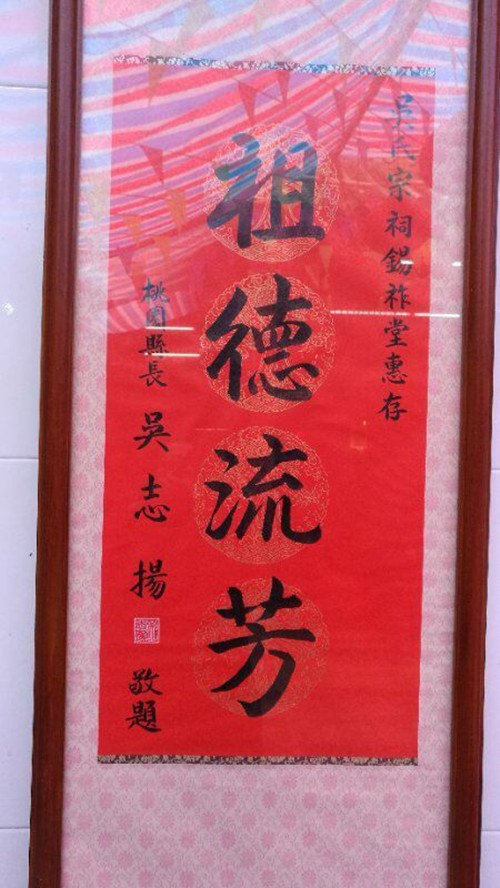 吳氏宗祠錫祚堂惠存
祖德流芳
桃園縣長 吳志揚 敬題